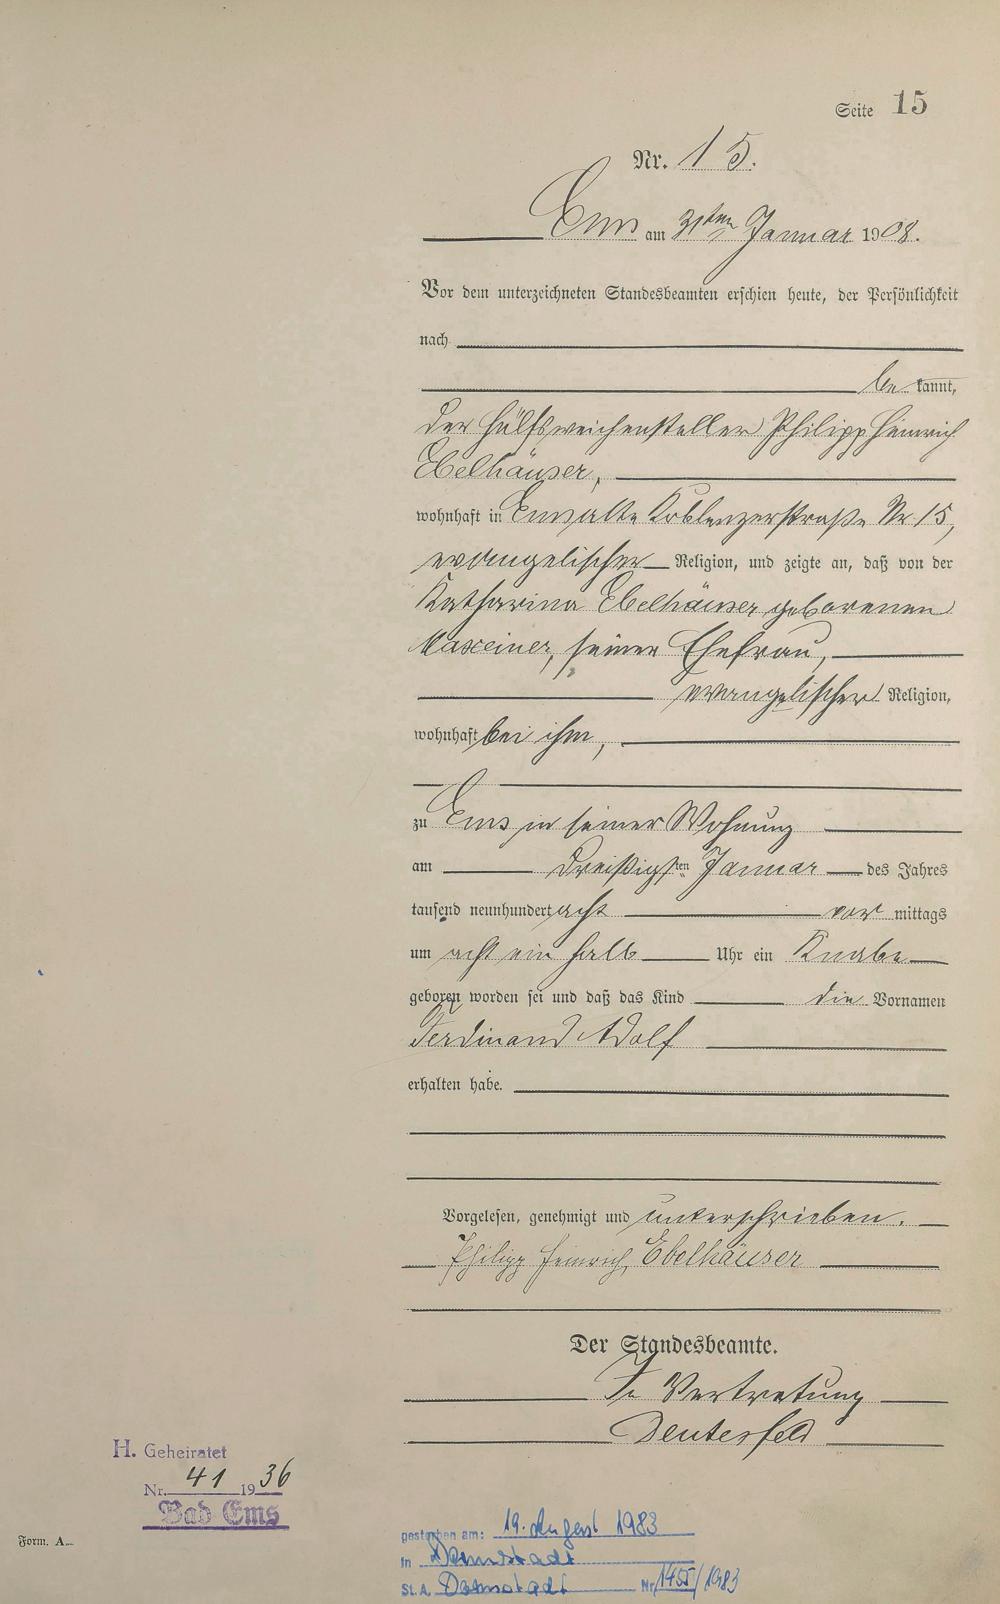 Seite 15
Nr. 15.
Ems am 31ten Januar 1908.
Vor dem unterzeichneten Standesbeamten erschien heute, der Persönlichkeit
nach
be kannt,
der Hülfsweichensteller Philipp Heinrich
Ebelhäuser,
wohnhaft in Ems, alte Koblenzerstraße Nr. 15,
evangelischer Religion, und zeigte an, daß von der
Katharina Ebelhäuser geborenen
Maxeiner, seiner Ehefrau,
evangelischer Religion,
wohnhaft bei ihm,
zu Ems in seiner Wohnung
am dreißigsten Januar des Jahres
tausend neunhundert acht vor mittags
um acht ein halb Uhr ein Knabe
geboren worden sei und daß das Kind die Vornamen
Ferdinand Adolf
erhalten habe.
Vorgelesen, genehmigt und unterschrieben.
Philipp Heinrich Ebelhäuser
Der Standesbeamte.
In Vertretung
H. Geheiratet
Nr. 41 1936
Bad Ems
Form. A.
gestorben am: 19. August 1983
in Darmstadt
St.A. Darmstadt Nr. 1455/1983